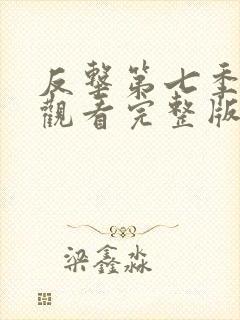 反擊第七季
觀看完整版
梁鑫淼